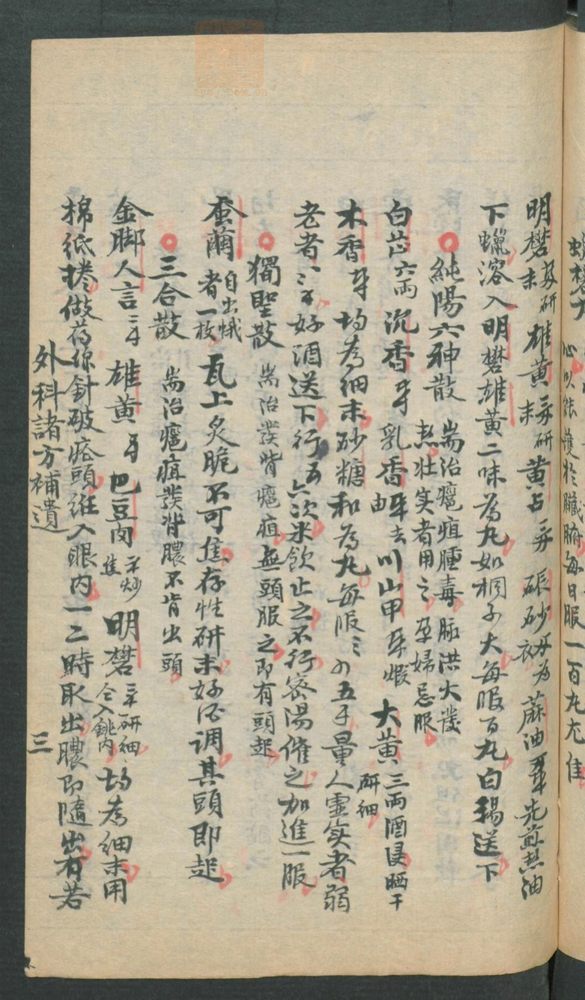 明礬 末 研 雄黃 末 研 黃占 硃砂 為衣 蔴油 先煎熱油
下蠟溶入明礬雄黃二味為丸如桐子大每服百丸白湯送下
純陽六神散 耑治癰疽腫毒脉洪大發熱壯實者用之孕婦忌服
白芷 六兩 沉香 乳香 去油 川山甲 大黃 三兩酒浸晒干研細
木香 均為細末砂糖和為丸每服三五子量人虛實者弱
老者 好酒送下行五六次米飲止之不行密湯催之加進一服
獨聖散 耑治發背癰疽無頭服之即有頭起
蚕繭 自出蛾者一枚 瓦上炙脆不可焦存性研末好酒调其頭即起
三合散 耑治癰疽發背膿不肯出頭
金脚人言 雄黃 巴豆肉 不炒焦 明礬 研細 仝入銚內 均為細末用
棉紙捲做 線針破瘡頭絍入眼內一二時取出膿即隨出有若
外科諸方補遺
三